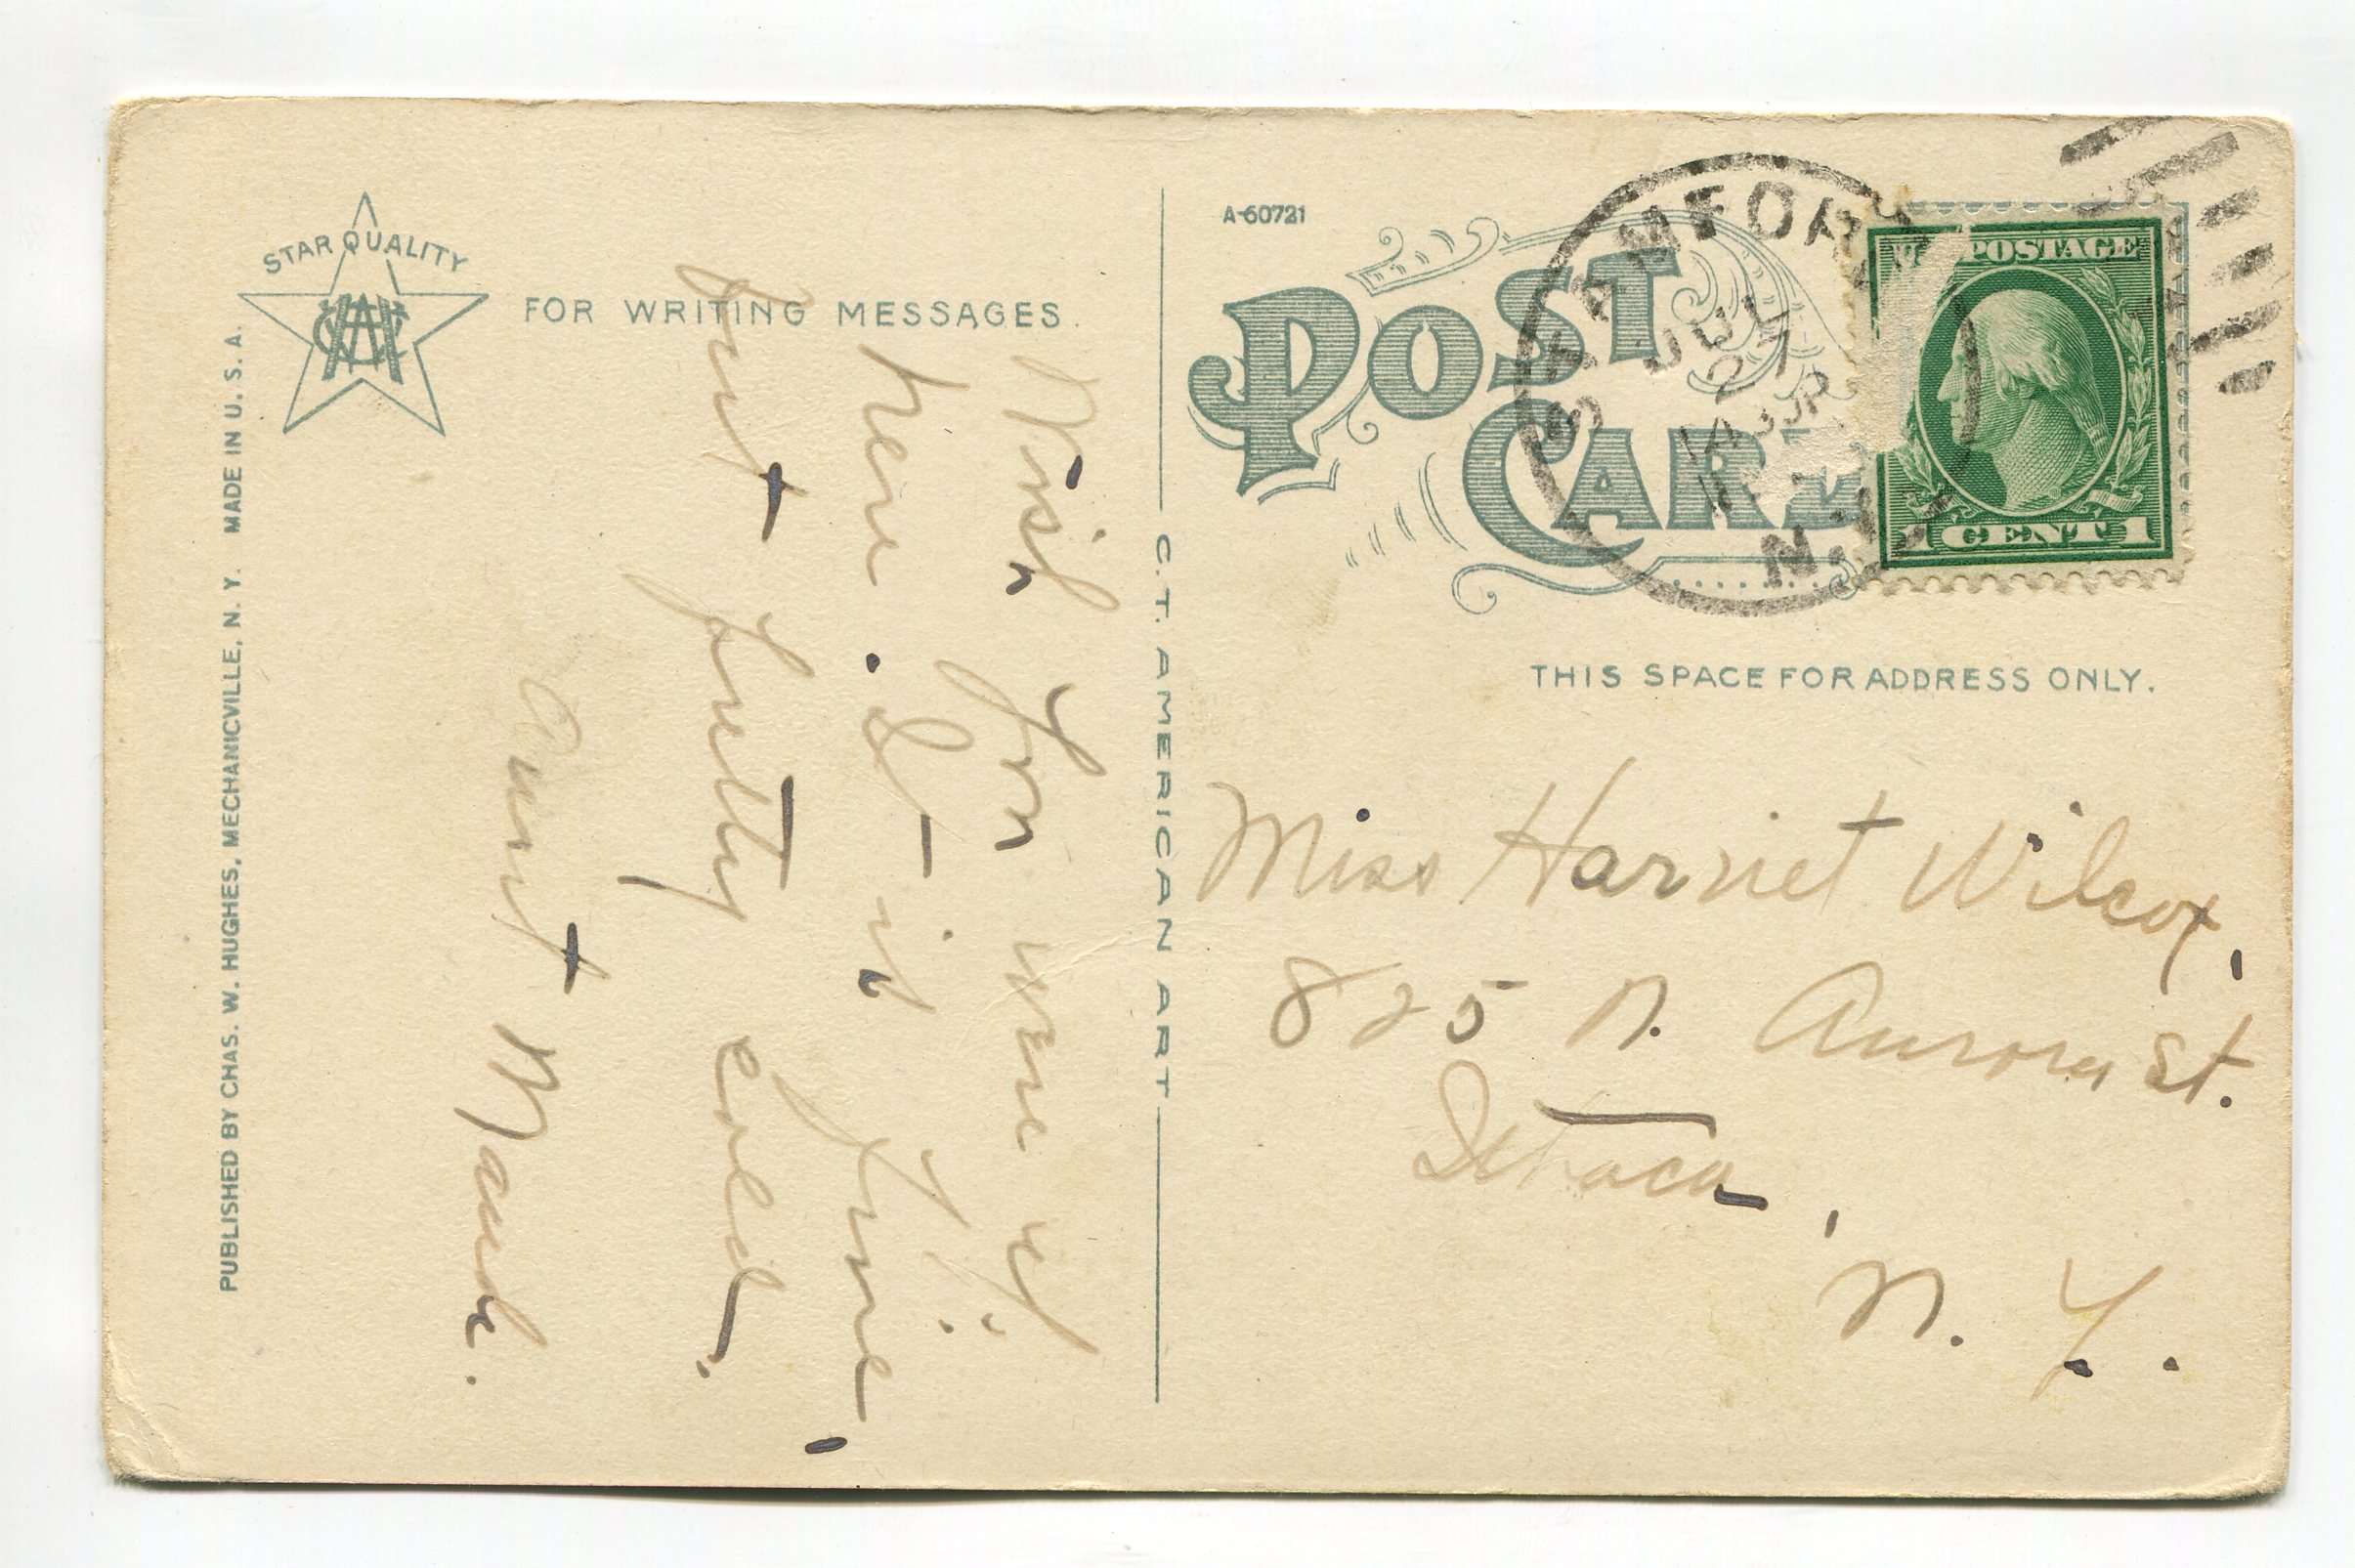 STAR QUALITY
FOR WRITING MESSAGES.
Wish you were up
here. It is fine,
but pretty cold.
Aunt Maude.
PUBLISHED BY CHAS. W. HUGHES, MECHANICVILLE, N. Y. MADE IN U. S. A.
C. T. AMERICAN ART
A-60721
POST
CARD
STAMFORD
JUL
27
N.Y.
POSTAGE
1 CENT 1
THIS SPACE FOR ADDRESS ONLY.
Miss Harriet Wilcox,
825 N. Aurora St.
Ithaca,
N. Y.